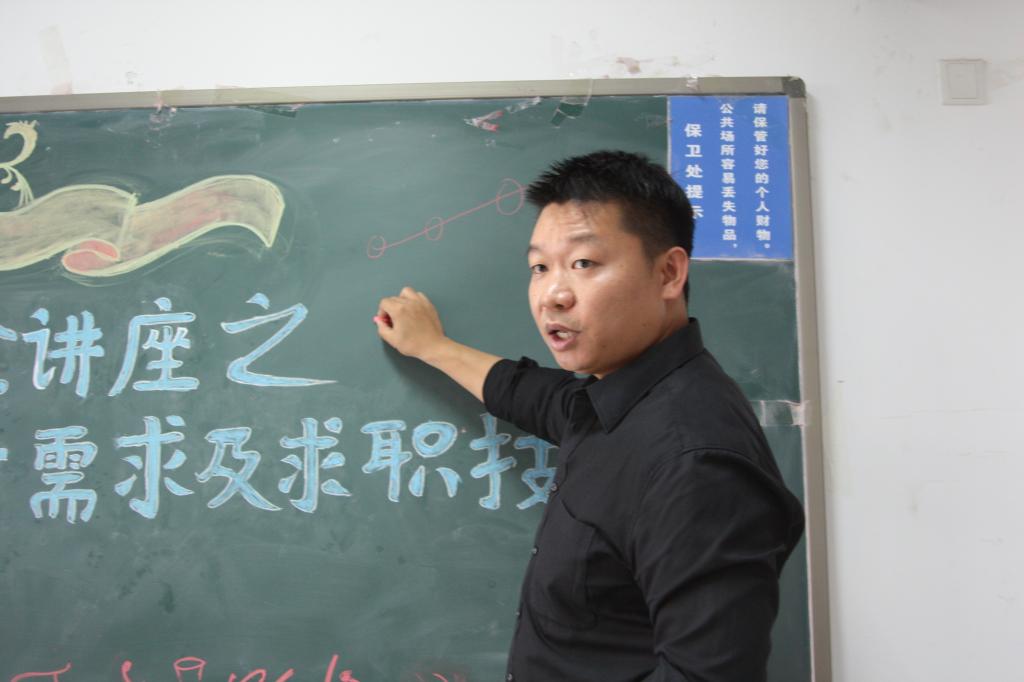 讲座之
需求及求职技
请保管好您的个人财物。
公共场所容易丢失物品，
保卫处提示